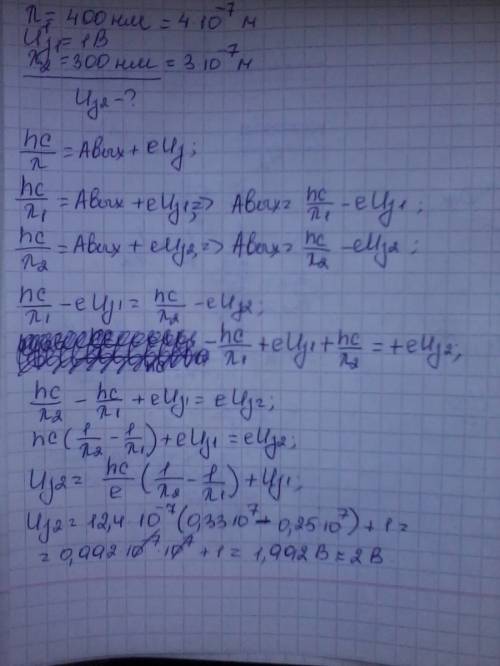 λ₁ = 400 нм = 4·10⁻⁷ м
Uз₁ = 1В
λ₂ = 300 нм = 3·10⁻⁷ м
Uз₂ - ?
hc/λ = Aвых + eUз;
hc/λ₁ = Aвых + eUз₁; => Aвых = hc/λ₁ - eUз₁;
hc/λ₂ = Aвых + eUз₂ => Aвых = hc/λ₂ - eUз₂;
hc/λ₁ - eUз₁ = hc/λ₂ - eUз₂;
- hc/λ₁ + eUз₁ + hc/λ₂ = + eUз₂;
hc/λ₂ - hc/λ₁ + eUз₁ = eUз₂;
hc(1/λ₂ - 1/λ₁) + eUз₁ = eUз₂;
Uз₂ = hc/e (1/λ₂ - 1/λ₁) + Uз₁;
Uз₂ = 12,4·10⁻⁷(0,33·10⁷ - 0,25·10⁷) + 1 =
= 0,992·10⁻⁷·10⁷ + 1 = 1,992 В = 2 В